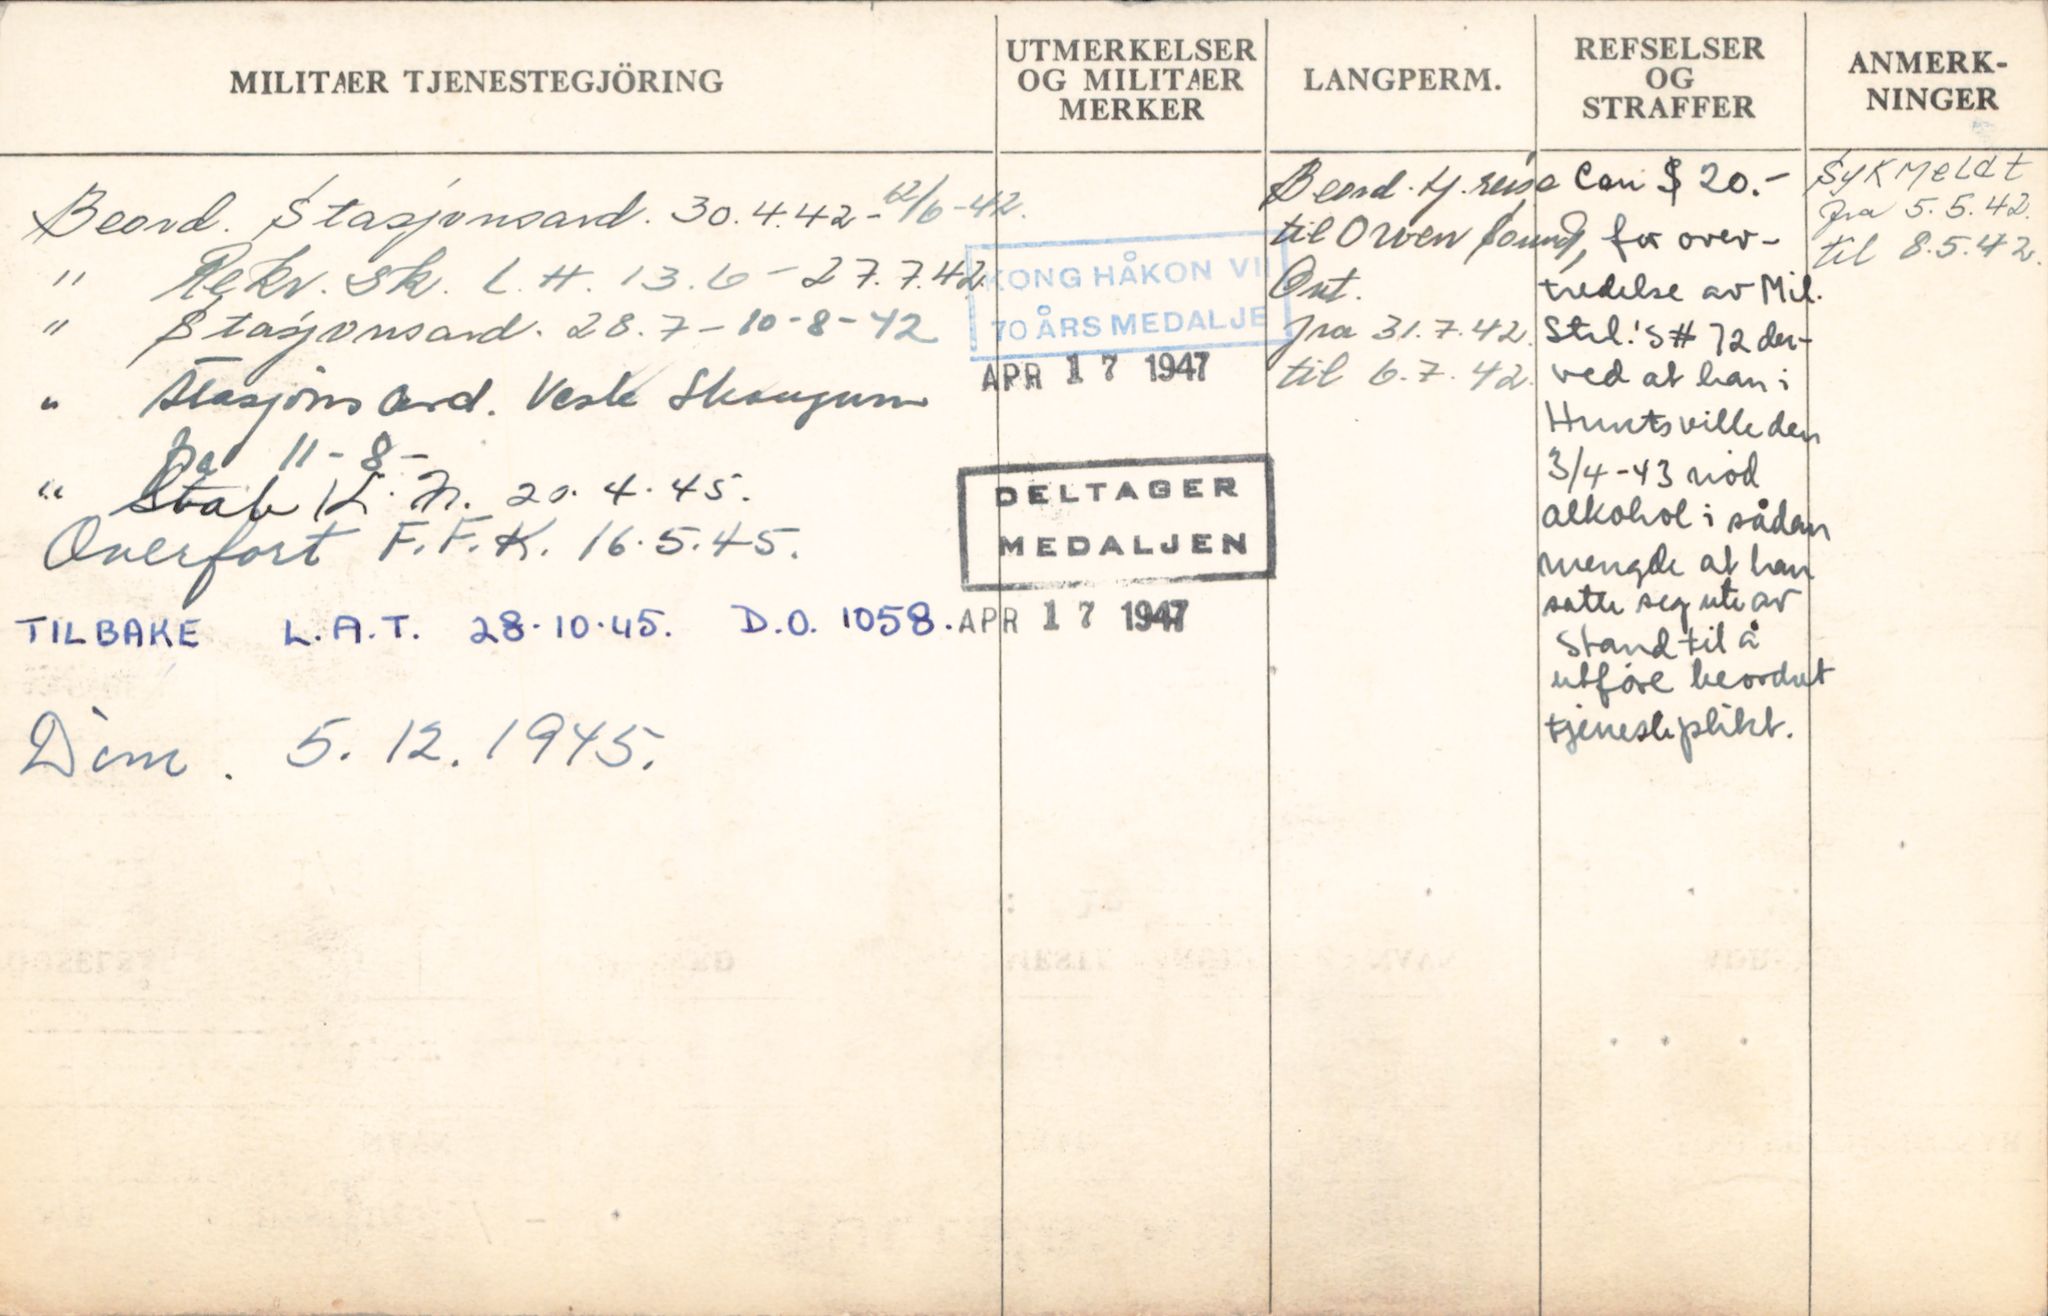 MILITÆR TJENESTEGJÖRING
UTMERKELSER
OG MILITÆR
MERKER
LANGPERM.
REFSELSER
OG
STRAFFER
ANMERK-
NINGER
Beord. Stasjonsavd. 30.4.42 - 12/6-42.
" Rekr. sk. L.H. 13.6 - 27.7.42
" Stasjonsavd. 28.7 - 10-8-42
" Stasjons avd. Vesle Skaugum
fra 11-8-
" Stab L.N. 20.4.45.
Overfört F.F.K. 16.5.45.
TILBAKE L.A.T. 28.10.45. D.O. 1058.
Dim. 5.12.1945.
KONG HÅKON VII
70 ÅRS MEDALJE
APR 17 1947
DELTAGER
MEDALJEN
APR 17 1947
Beord. tj. reise
til Owen Sound,
Ont.
fra 31.7.42.
til 6.7.42.
Can $ 20.-
for over-
tredelse av Mil.
Strl.'s # 72 der-
ved at han i
Huntsville den
3/4-43 nöd
alkohol i sådan
mengde at han
satte seg ute av
stand til å
utföre beordret
tjenesteplikt.
Sykmeldt
fra 5.5.42.
til 8.5.42.